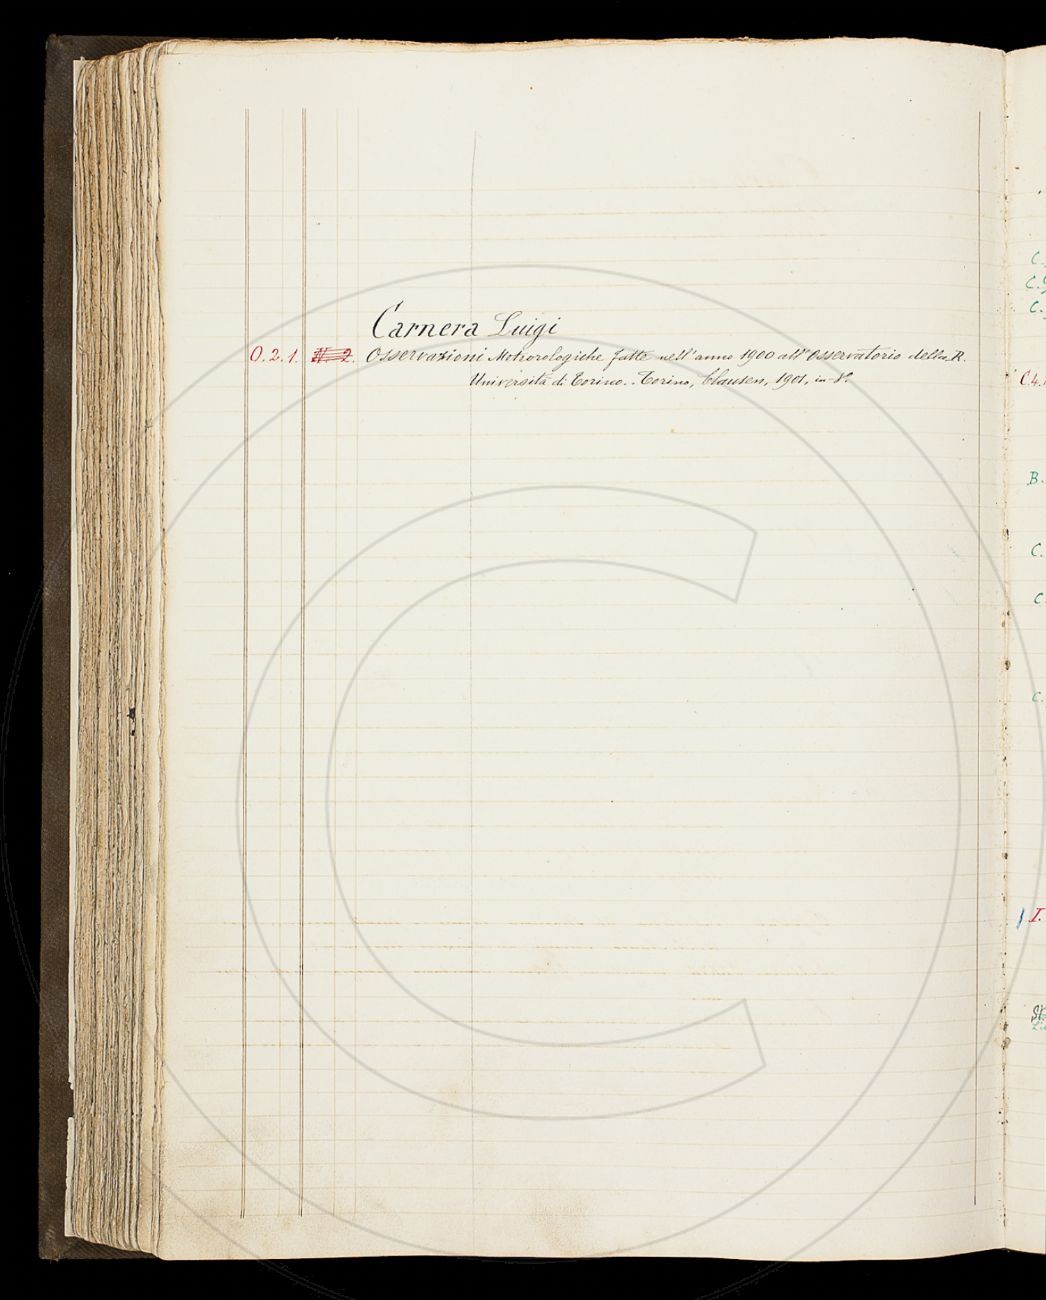 Carnera Luigi
O. 2. 1. Osservazioni Meteorologiche fatte nell'anno 1900 all'Osservatorio della R.
Università di Torino. - Torino, Clausen, 1901, in-8°.
C.
C.
C.
C.4.
B.
C.
C.
C.
I.